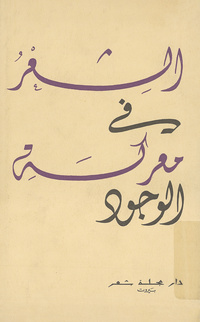 الشِعْرُ
في
معركة
الوجود
دار مجلة شعر
بيروت